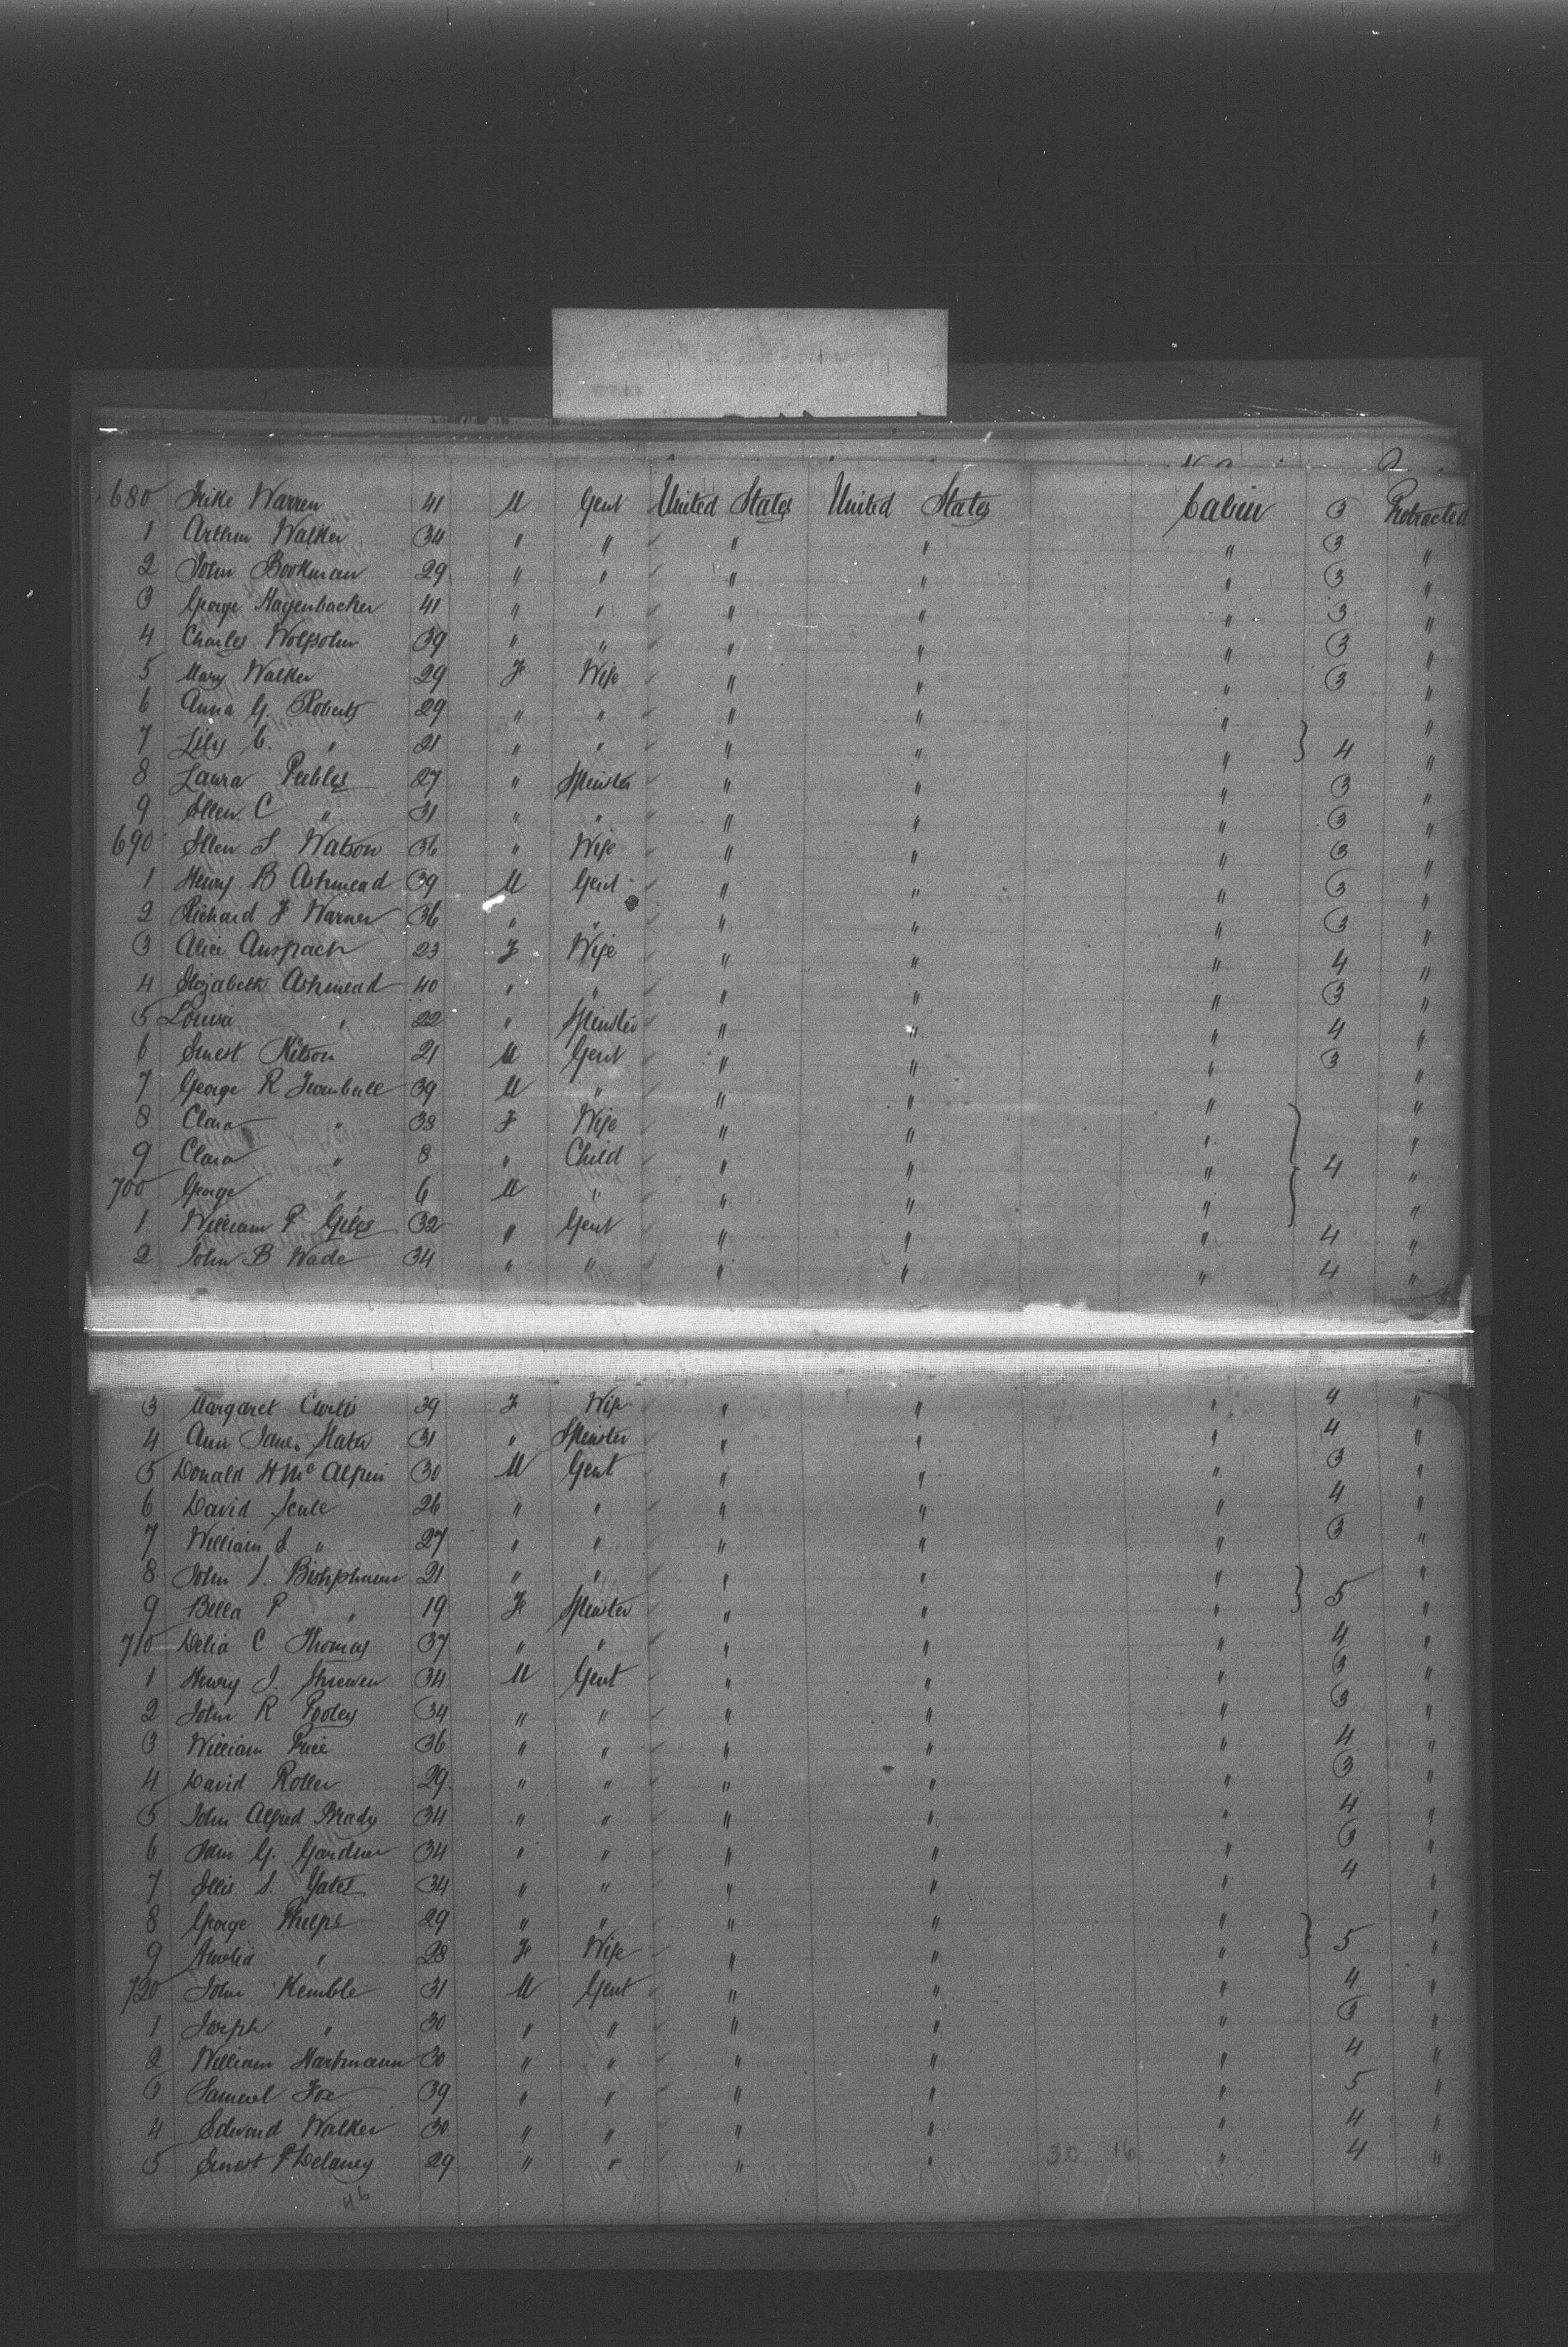 680 Warren 41 M Gent United States United States Cabin 3 Protracted
1 Arthur Walker 34 " " " " " 3 "
2 John Bookman 29 " " " " " 3 "
3 George Hagenbacker 41 " " " " " 3 "
4 Charles Wolfsohn 39 " " " " " 3 "
5 Mary Walker 29 F Wife " " " 3 "
6 Anna G. Roberts 29 " " " " " "
7 Lily C. " 21 " " " " " } 4 "
8 Laura Peebles 27 " Spinster " " " 3 "
9 Ellen C " 31 " " " " " 3 "
690 Ellen S Watson 36 " Wife " " " 3 "
1 Henry B Ashmead 39 M Gent " " " 3 "
2 Richard F Warner 36 " " " " " 3 "
3 Alice Anspach 23 F Wife " " " 4 "
4 Elizabeth Ashmead 40 " " " " " 3 "
5 Louisa " 22 " Spinster " " " 4 "
6 Ernest Kitson 21 M Gent " " " 3 "
7 George R Turnbull 39 M " " " " "
8 Clara " 38 F Wife " " " "
9 Clara " 8 " Child " " " } 4 "
700 George " 6 M " " " " "
1 William P Giles 32 " Gent " " " 4 "
2 John B Wade 34 " " " " " 4 "
3 Margaret Curtis 39 F Wife " " " 4 "
4 Ann Jane 31 " Spinster " " " 4 "
5 Donald H McAlpin 30 M Gent " " " 3 "
6 David 26 " " " " " 4 "
7 William S " 27 " " " " " 3 "
8 John S. 21 " " " " " "
9 Bella P " 19 F Spinster " " " } 5 "
710 Delia C Thomas 37 " " " " " 4 "
1 Henry J. 34 M Gent " " " 3 "
2 John R Pooley 34 " " " " " 3 "
3 William Price 36 " " " " " 4 "
4 David Roller 29 " " " " " 3 "
5 John Alfred Brady 34 " " " " " 4 "
6 John G. Gardner 34 " " " " " 3 "
7 Ellis S. Yates 34 " " " " " 4 "
8 George Phelps 29 " " " " " "
9 Amelia " 28 F Wife " " " } 5 "
720 John Kemble 31 M Gent " " " 4 "
1 Joseph " 30 " " " " " 3 "
2 William Hartmann 30 " " " " " 4 "
3 Samuel Fox 39 " " " " " 5 "
4 Edward Walker 30 " " " " " 4 "
5 Ernest P Delaney 29 " " " " 30 16 " 4 "
46